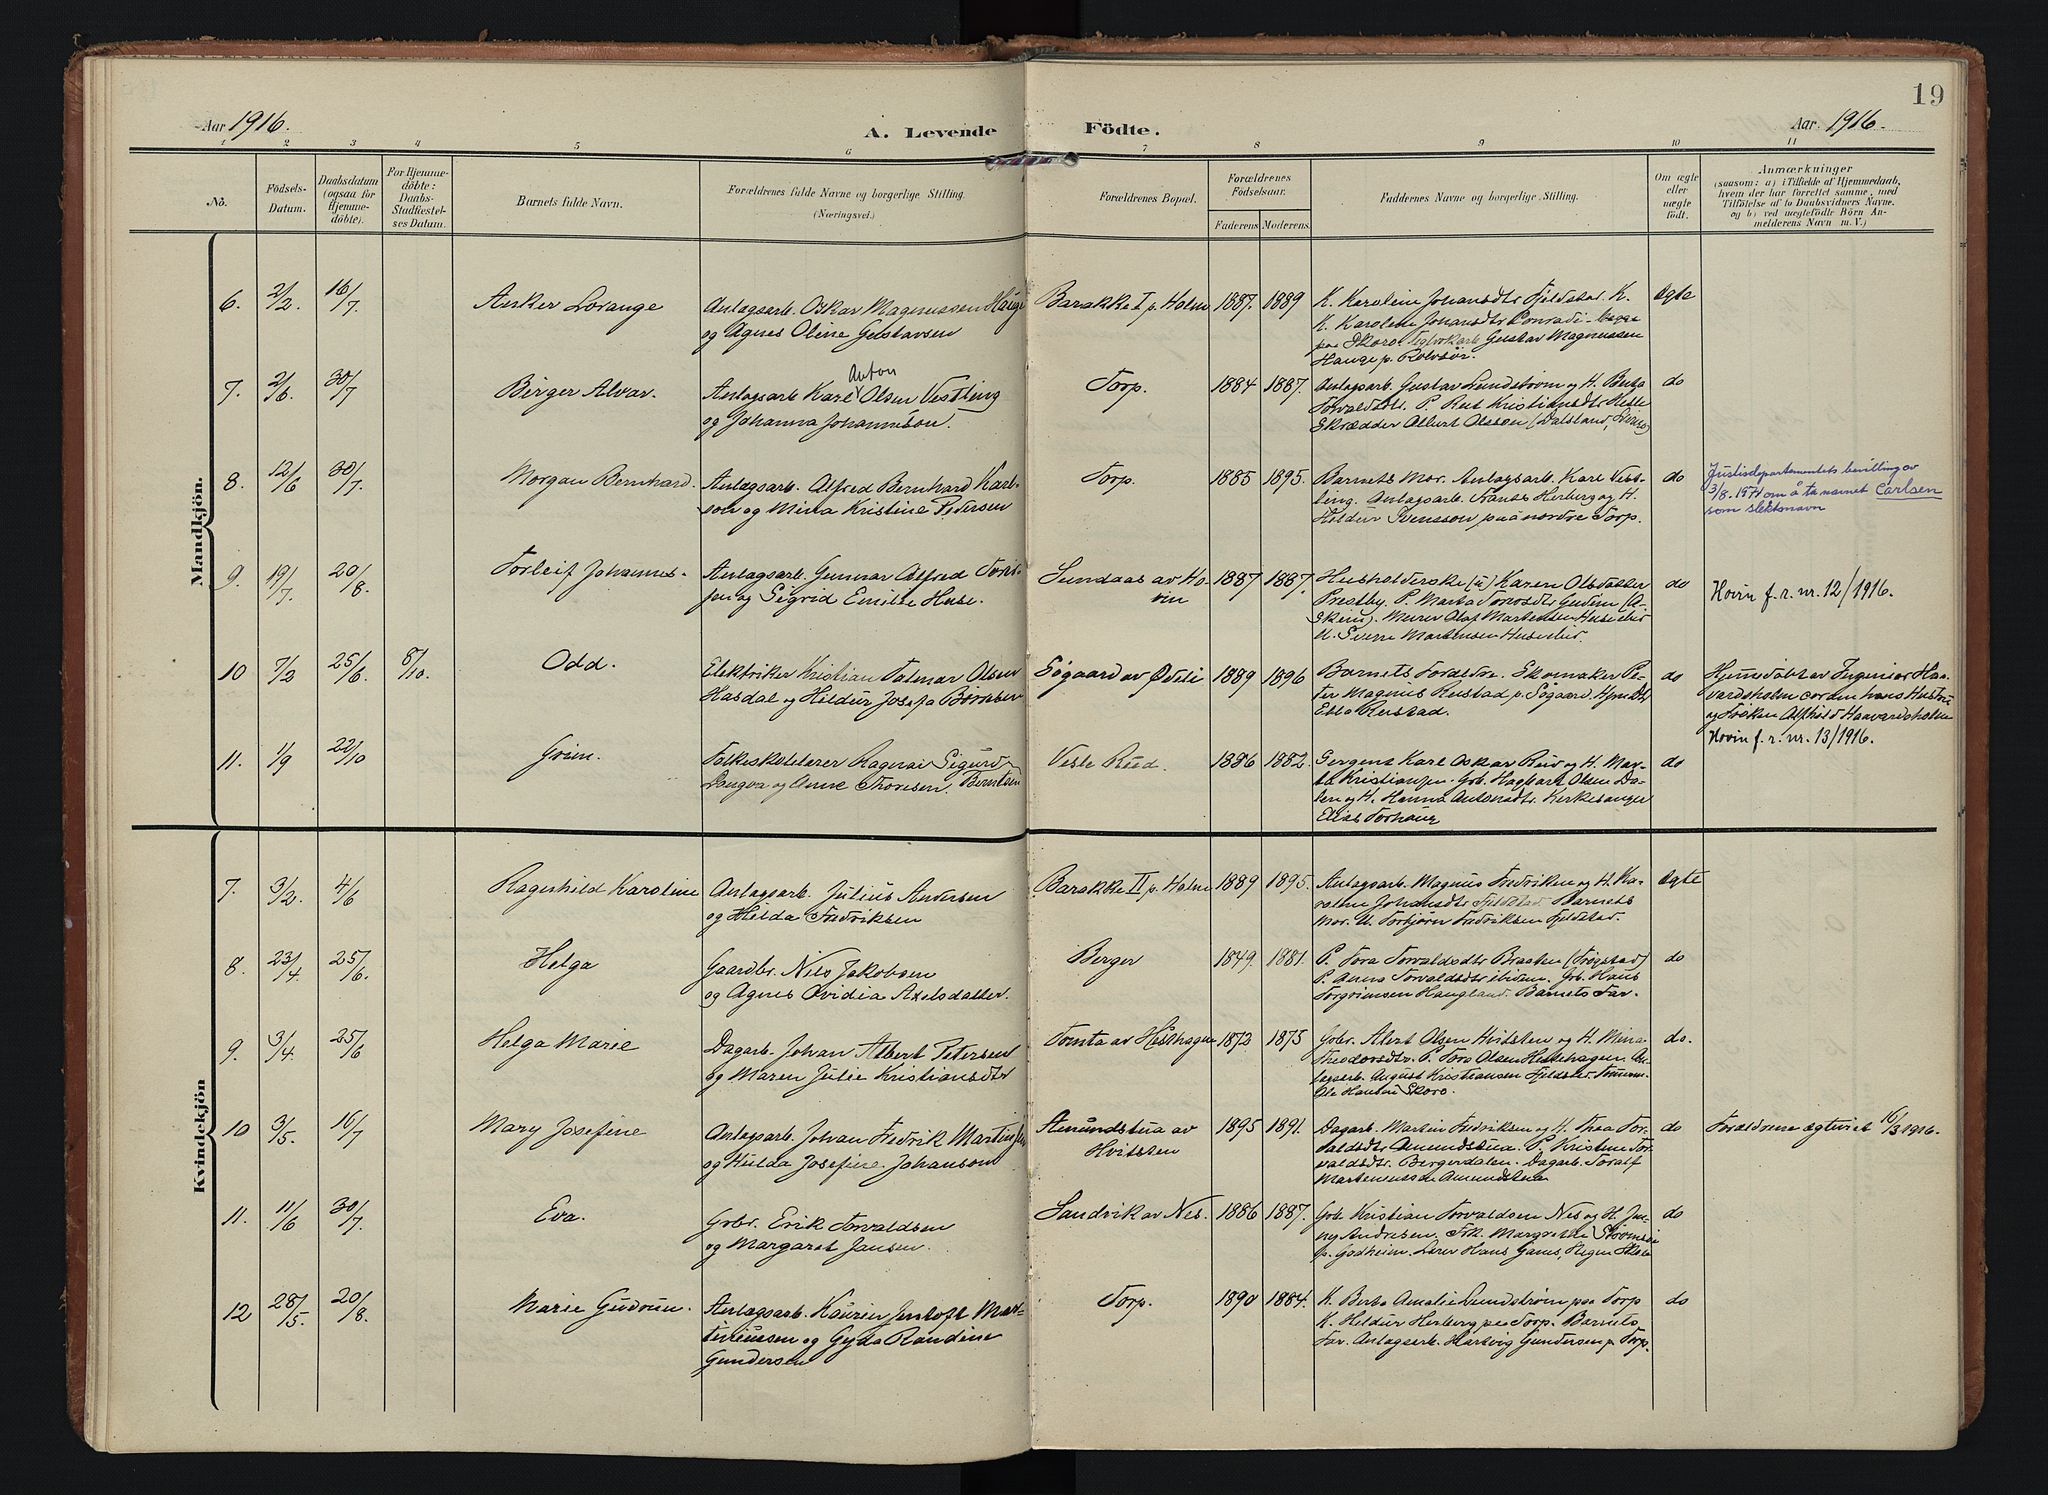 19
Aar 1916.
A. Levende
Födte.
Aar 1916.
1 2 3 4 5 6 7 8 9 10 11
No.
Födsels-
Datum.
Daabsdatum
(ogsaa for
Hjemme-
döbte).
For Hjemme-
döbte:
Daabs-
Stadfæstel-
ses Datum.
Barnets fulde Navn.
Forældrenes fulde Navne og borgerlige Stilling.
(Næringsvei.)
Forældrenes Bopæl.
Forældrenes
Födselsaar.
Faderens Moderens.
Faddernes Navne og borgerlige Stilling.
Om ægte
eller
uægte
födt.
Anmærkninger
(saasom: a) i Tilfælde af Hjemmedaab,
hvem der har forrettet samme, med
Tilföielse af to Daabsvidners Navne.
og b) ved uægtefödte Börn An-
melderens Navn m. V.)
Mandkjön.
6. 2/2. 16/7. Anker Lorange Anlagsarb. Oskar Magnussen Hauge
og Agnes Oline Gustavsen
Barakke I p. Holm 1887. 1889
K. Karoline Johansdtr Fjeldstad. K.
K. Karoline Johansdtr Conradi- begge
paa Skoro. Teglverkarb Gustav Magnussen
Hauge p. Rolvsör.
Ægte
7. 2/6. 30/7 Birger Alvar. Anton
Anlagsarb. Karl Olsen Vestling
og Johanna Johanneson.
Torp. 1884 1887.
Anlagsarb. Gustav Lundström og H. Berta
Torvaldsdtr. P. Rut Kristiansdtr Helle
Skrædder Albert Olsson (Dalsland,
do
8. 12/6 30/7. Morgan Bernhard. Anlægsarb. Alfred Bernhard Karl-
son og Mina Kristine Pedersen
Torp. 1885 1895.
Barnets Mor. Anlagsarb. Karl Vest-
ling. Anlagsarb. Frants Herberg og H.
Hildur Svensson paa nordre Torp.
do
Justisdepartementets bevilling av
3/8. 1971 om å ta navnet Carlsen
som slektsnavn
9. 19/7. 20/8. Torleif Johannes. Anlagsarb. Gunnar Alfred
og Sigrid Emilie Huse.
Sundaas av Ho-
vin
1887 1887.
Husholderske (u) Karen Olsdatter
Prestby. P. Marta
Skein). Murer Olaf Martensen Husebie
U. Sverre Martensen Husebie.
do
Hovin f. r. nr. 12/1916.
10 7/2 25/6. 8/10. Odd. Elektriker Kristian Talmar Olsen
Hasdal og Hildur Josefa
Søgaard av 1889 1896
Barnets Forældre. Skomaker Pe-
ter Magnus Reistad p. Søgaard.
Ebba Reistad.
do
Hjemmedöbt av Ingeniør Haa-
vardsholm
og Frøken Alfhild Haavardsholm
Hovin f. r. nr. 13/1916.
11. 1/9 22/10 Grim. Folkeskolelærer Ragnvar Sigurd
Langva og Anne Thoresen Berntsen
Vesle Rud. 1886 1882.
Sergent Karl Oskar Ruud og H. Mar-
ta Kristiansen. Grb. Hagbart Olsen Da-
len og H. Hanna Antonsdtr. Kirkesanger
Elias Torhaug
do
Kvindekjön
7. 3/2. 4/6 Ragnhild Karoline Anlagsarb. Julius Andersen
og Hilda Fredriksen
Barakke II p. Holm 1889 1895.
Anlagsarb. Magnus Fredriksen og H. Ka-
roline Johansdtr Fjeldstad Barnets
Mor. U. Torbjörn Fredriksen Fjeldstad.
Ægte
8. 23/4. 25/6. Helga Gaardbr. Nils Jakobsen
og Agnes Ovidia Axelsdatter.
Berger 1849. 1881.
P. Tora Torvaldsdtr Braaten (Trøgstad)
P. Anna Torvaldsdtr ibidem. Grb. Hans
Torgrimsen Haugland. Barnets Far.
do
9. 3/4. 25/6 Helga Marie Dagarb. Johan Albert Petersen
og Maren Julie Kristiansdtr
Tomta av Hellehagen 1872 1875
Grbr. Alert Olsen Hvitsten og H. Mina
Theodorsdtr. P. Tora Olsen Hellehagen. An-
lagsarb. August Kristiansen Fjeldstad.
Ole Hansen Skoro.
do.
10 3/5. 16/7 Mary Josefine Anlagsarb. Johan Fredrik Martinsen
og Hulda Josefine Johanson
Amundstua av
Hvitsten
1895 1891.
Dagarb. Martin Fredriksen og H. Thea Tor-
valdsdtr Amundstua. P. Kristine Tor-
valdsdtr. Bergerdalen. Dagarb. Toralf
Martinussen Amundstua
do
Forældrene ægteviet 16/3 1916.
11. 11/6 30/7. Eva. Grbr. Erik Torvaldsen
og Margaret Jansen.
Sandvik av Nes. 1886 1887.
Grb. Kristian Torvaldsen Nes og H. Jen-
ny Andresen. Frk. Margrethe
p. Godheim. Lærer Hans
do
12 28/5. 20/8. Marie Gudrun. Anlagsarb. Hauxin Jentoft Mar-
tiniussen og Gyda Randine
Gundersen
Torp. 1890 1884.
K. Berta Amalie Lundström paa Torp
K. Hildur Herberg paa Torp. Barnets
Far. Anlagsarb. Hartvig Gundersen p. Torp.
do